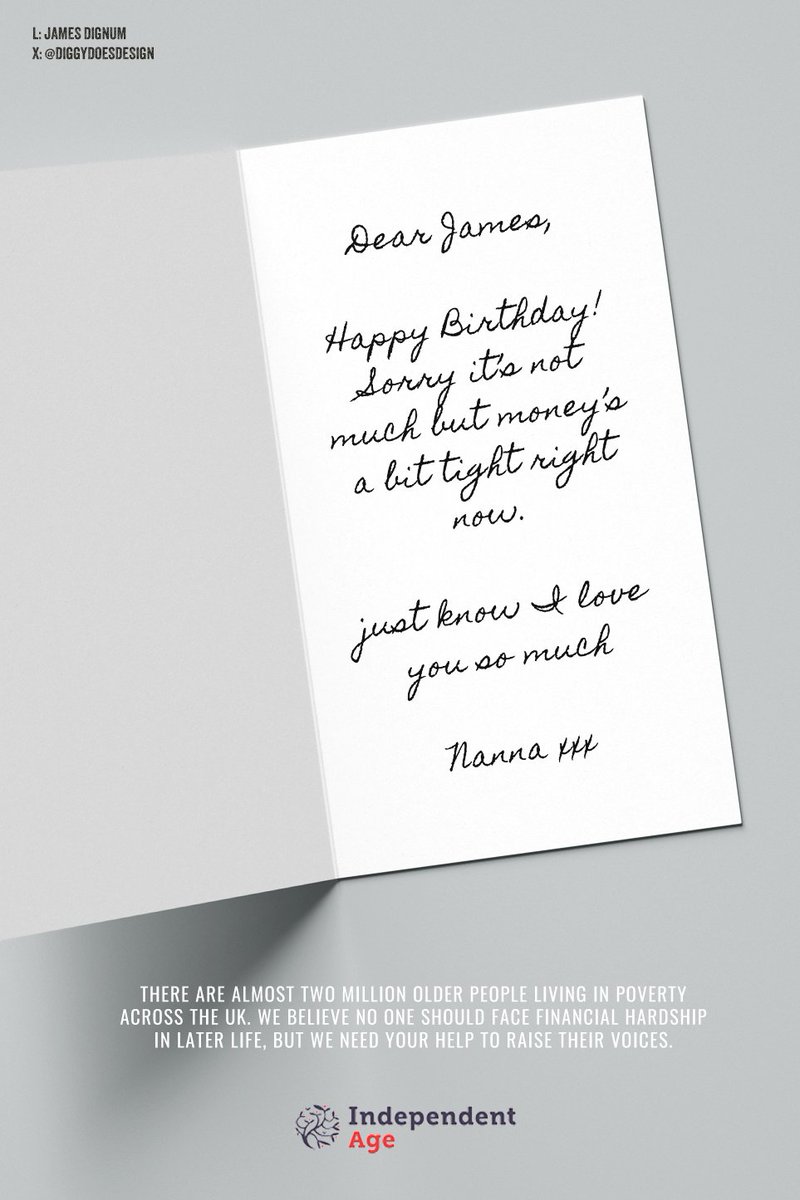 L: JAMES DIGNUM
X: @DIGGYDOESDESIGN
Dear James,
Happy Birthday!
Sorry it's not
much but money's
a bit tight right
now.
just know I love
you so much
Nanna xxx
THERE ARE ALMOST TWO MILLION OLDER PEOPLE LIVING IN POVERTY
ACROSS THE UK. WE BELIEVE NO ONE SHOULD FACE FINANCIAL HARDSHIP
IN LATER LIFE, BUT WE NEED YOUR HELP TO RAISE THEIR VOICES.
Independent
Age